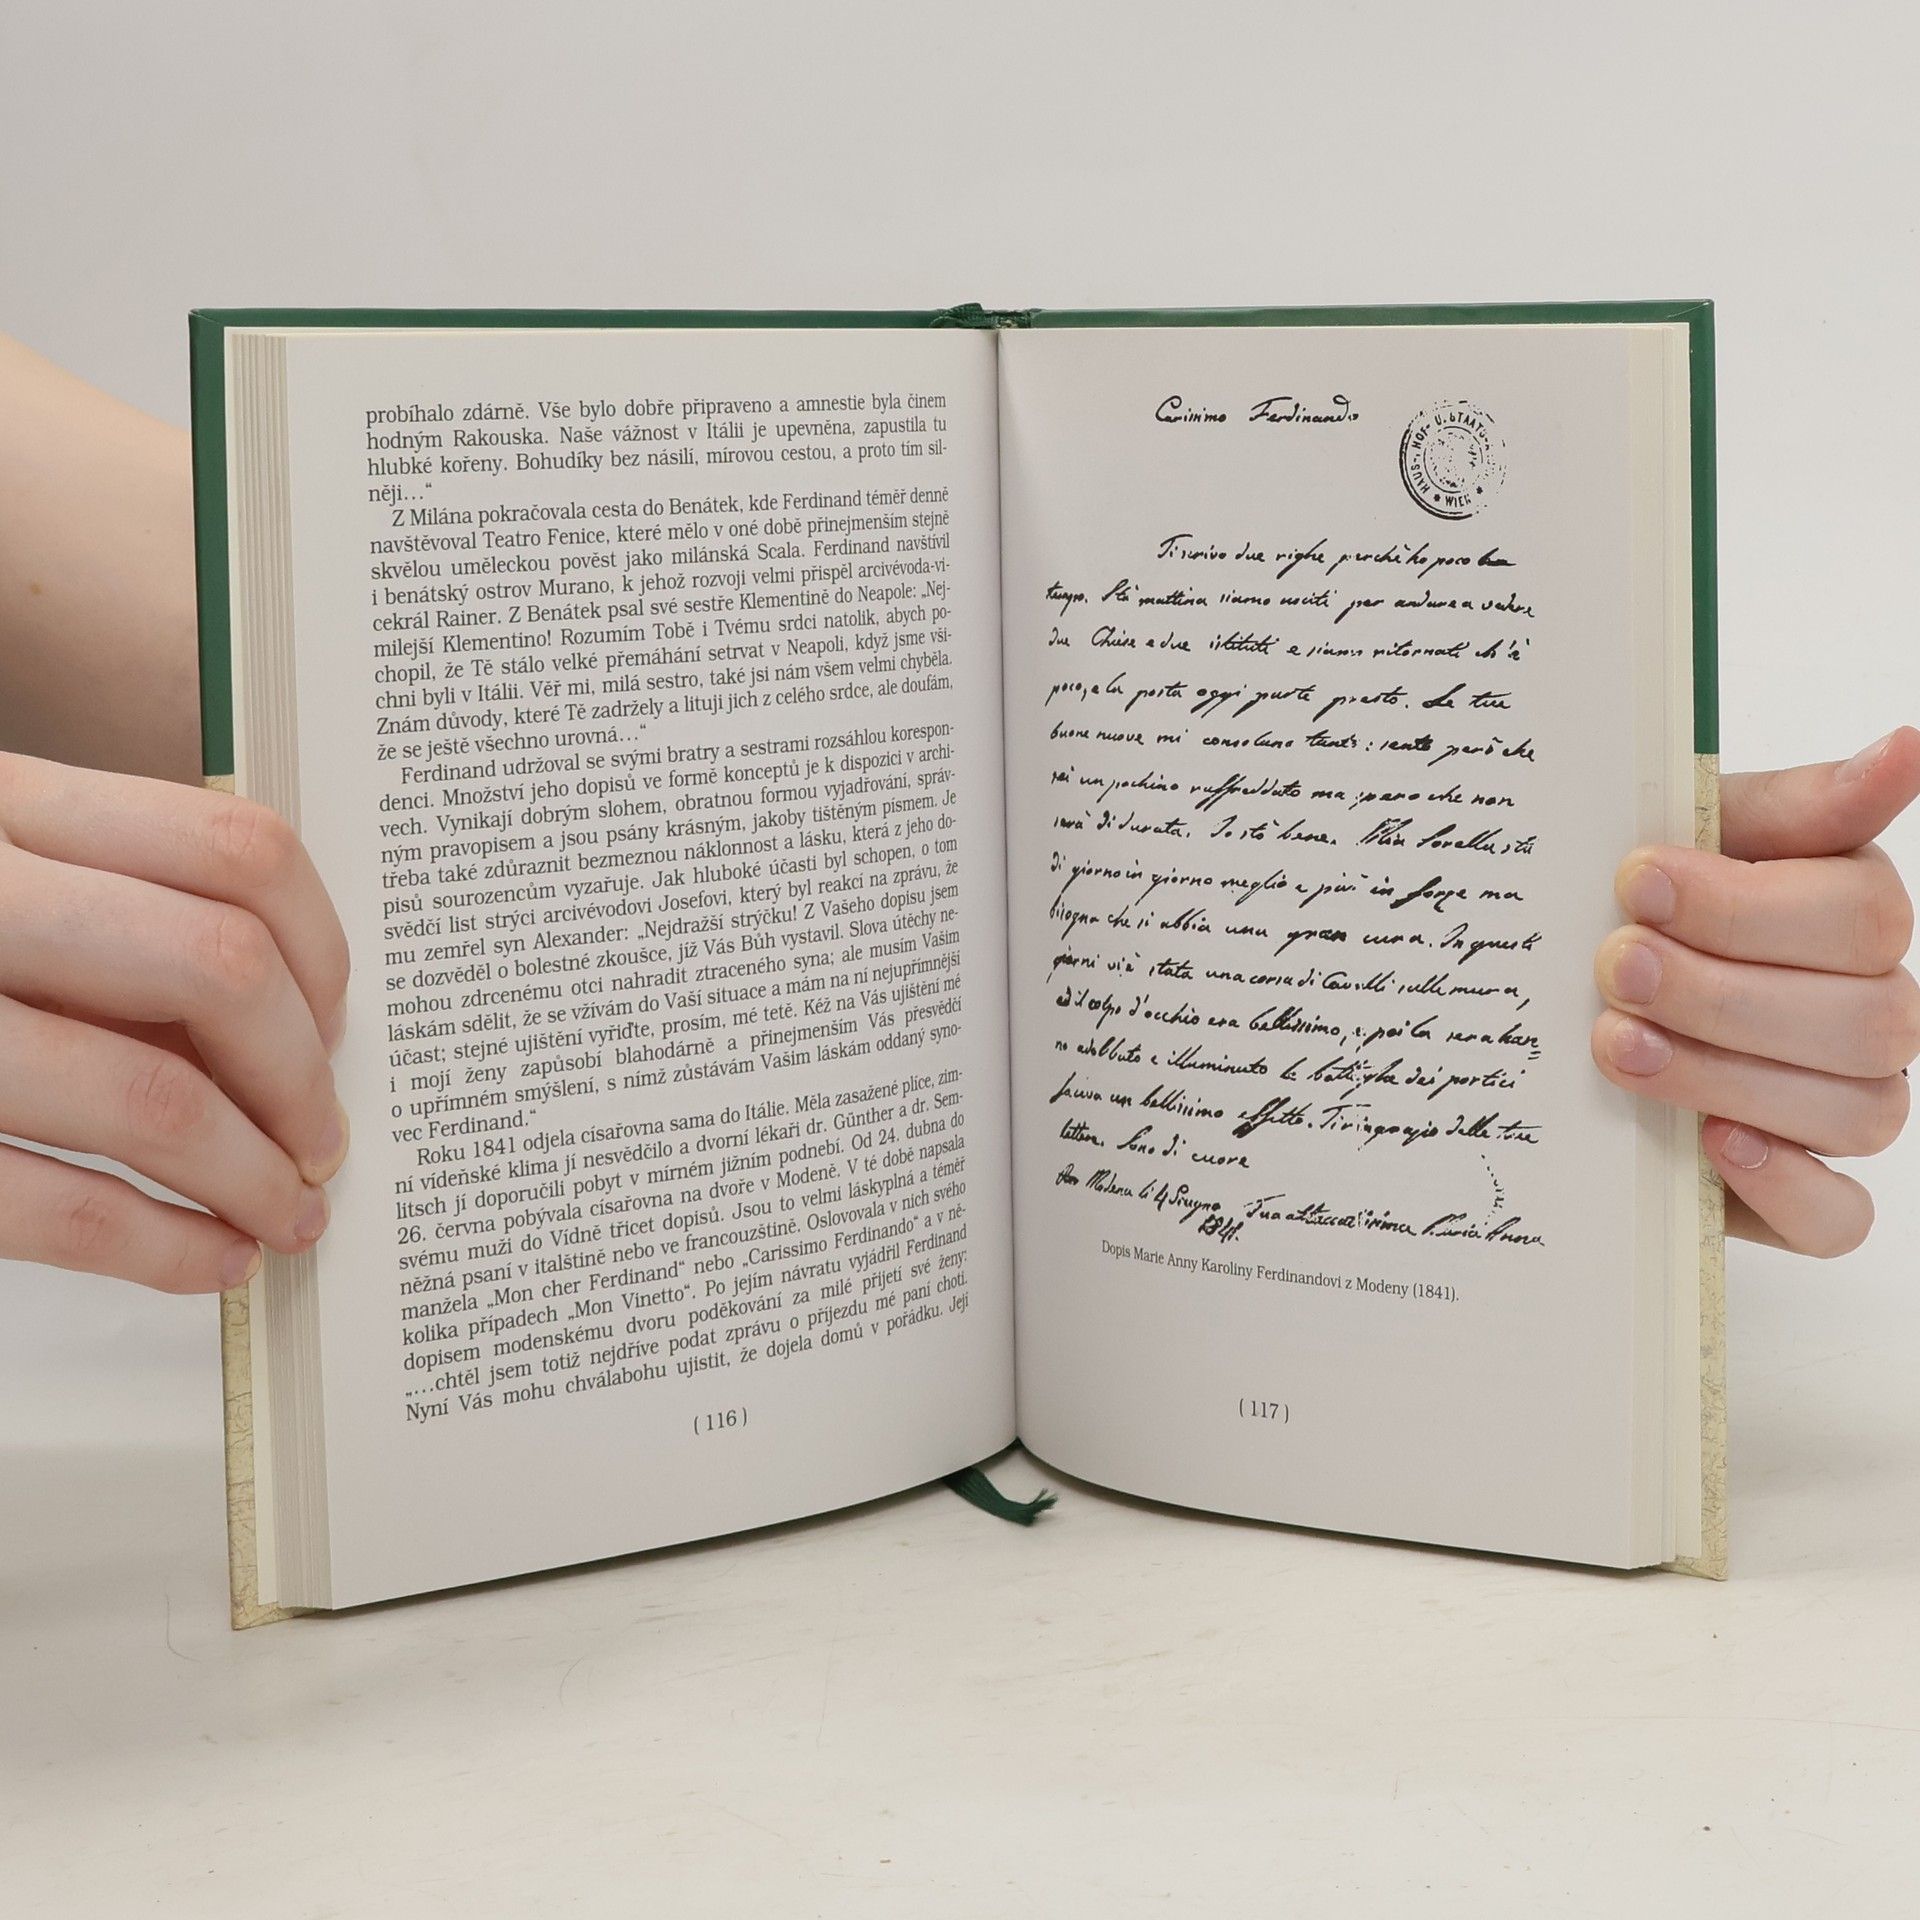 probíhalo zdárně. Vše bylo dobře připraveno a amnestie byla činem
hodným Rakouska. Naše vážnost v Itálii je upevněna, zapustila tu
hlubké kořeny. Bohudíky bez násilí, mírovou cestou, a proto tím sil-
něji…“
Z Milána pokračovala cesta do Benátek, kde Ferdinand téměř denně
navštěvoval Teatro Fenice, které mělo v oné době přinejmenším stejně
skvělou uměleckou pověst jako milánská Scala. Ferdinand navštívil
i benátský ostrov Murano, k jehož rozvoji velmi přispěl arcivévoda-ví-
cekrál Rainer. Z Benátek psal své sestře Klementině do Neapole: „Nej-
milejší Klementino! Rozumím Tobě i Tvému srdci natolik, abych po-
chopil, že Tě stálo velké přemáhání setrvat v Neapoli, když jsme vši-
chni byli v Itálii. Věř mi, milá sestro, také jsi nám všem velmi chyběla.
Znám důvody, které Tě zadržely a lituji jich z celého srdce, ale doufám,
že se ještě všechno urovná…“
Ferdinand udržoval se svými bratry a sestrami rozsáhlou korespon-
denci. Množství jeho dopisů ve formě konceptů je k dispozici v archi-
vech. Vynikají dobrým slohem, obratnou formou vyjadřování, správ-
ným pravopisem a jsou psány krásným, jakoby tištěným písmem. Je
třeba také zdůraznit bezmeznou náklonnost a lásku, která z jeho do-
pisů sourozencům vyzařuje. Jak hluboké účasti byl schopen, o tom
svědčí list strýci arcivévodovi Josefovi, který byl reakcí na zprávu, že
mu zemřel syn Alexander: „Nejdražší strýčku! Z Vašeho dopisu jsem
se dozvěděl o bolestné zkoušce, jíž Vás Bůh vystavil. Slova útěchy ne-
mohou zdrcenému otci nahradit ztraceného syna; ale musím Vašim
láskám sdělit, že se vžívám do Vaší situace a mám na ní nejupřímnější
účast; stejné ujištění vyřiďte, prosím, mé tetě. Kéž na Vás ujištění mé
i mojí ženy zapůsobí blahodárně a přinejmenším Vás přesvědčí
o upřímném smýšlení, s nímž zůstávám Vašim láskám oddaný syno-
vec Ferdinand.“
Roku 1841 odjela císařovna sama do Itálie. Měla zasažené plíce, zim-
ní vídeňské klima jí nesvědčilo a dvorní lékaři dr. Günther a dr. Sem-
litsch jí doporučili pobyt v mírném jižním podnebí. Od 24. dubna do
26. června pobývala císařovna na dvoře v Modeně. V té době napsala
svému muži do Vídně třicet dopisů. Jsou to velmi láskyplná a téměř
něžná psaní v italštině nebo ve francouzštině. Oslovovala v nich svého
manžela „Mon cher Ferdinand“ nebo „Carissimo Ferdinando“ a v ně-
kolika případech „Mon Vinetto“. Po jejím návratu vyjádřil Ferdinand
dopisem modenskému dvoru poděkování za milé přijetí své ženy:
„…chtěl jsem totiž nejdříve podat zprávu o příjezdu mé paní choti.
Nyní Vás mohu chválabohu ujistit, že dojela domů v pořádku. Její
( 116 )
Carissimo Ferdinando
HAUS-, HOF- U. STAATS-
* WIEN *
Ti scrivo due righe perchè ho poco
tempo. Stà mattina siamo usciti per andare a vedere
due Chiese e due istituti e siamo ritornati ch'è
poco, e la posta oggi parte presto. Le tue
buone nuove mi consolano tanto: sento però che
sei un pochino raffreddato ma spero che non
sarà di durata. Io stò bene. Mia Sorella stà
di giorno in giorno meglio e più in forze ma
bisogna che si abbia una gran cura. In questi
giorni vi è stata una corsa di Cavalli sulle mura,
ed il colpo d'occhio era bellissimo, e poi la sera han=
no addobbato e illuminato le botteghe dei portici
faceva un bellissimo effetto. Ti ringrazio delle tue
lettere. Sono di cuore
Modena li 4 Giugno Tua attaccatissima Maria Anna
1841.
Dopis Marie Anny Karoliny Ferdinandovi z Modeny (1841).
( 117 )